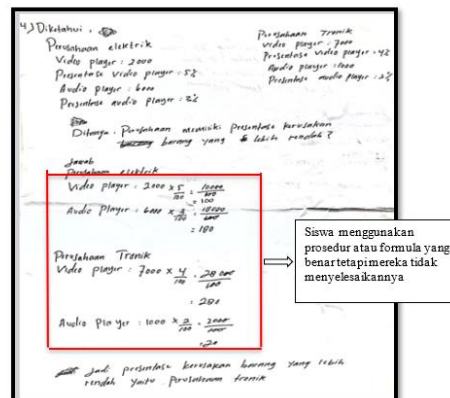 4.) Diketahui :
Perusahaan elektrik
Video player : 2000
Presentase video player : 5%
Audio player : 6000
Presentase audio player : 3%
Perusahaan Tronik
Video player : 7000
Presentase video player : 4%
Audio player : 1000
Presentase audio player : 2%
Ditanya : Perusahaan memiliki presentase kerusakan
barang yang lebih rendah?
Jawab
Perusahaan elektrik
Video player : 2000 x 5/100 = 10000/100
= 100
Audio Player : 6000 x 3/100 = 18000/100
= 180
Perusahaan Tronik
Video player : 7000 x 4/100 = 28000/100
= 280
Audio Player : 1000 x 2/100 = 2000/100
= 20
Jadi presentase kerusakan barang yang lebih
rendah yaitu perusahaan tronik
Siswa menggunakan
prosedur atau formula yang
benar tetapi mereka tidak
menyelesaikannya